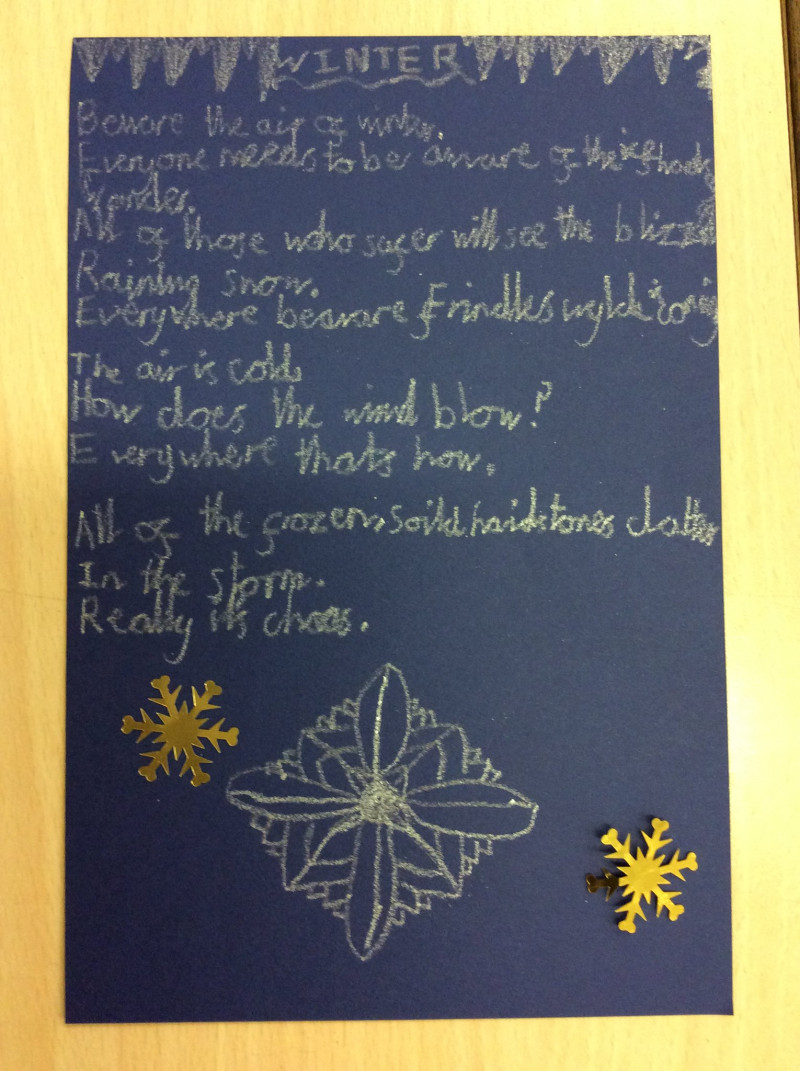 WINTER
Beware the air of winter.
Everyone needs to be aware of the ice shards
Yonder.
All of those who suger will see the blizzard
Raining snow.
Everywhere beware
The air is cold,
How does the wind blow?
Everywhere thats how.
All of the frozen, soild haidstones clatter
In the storm.
Really its chaos.